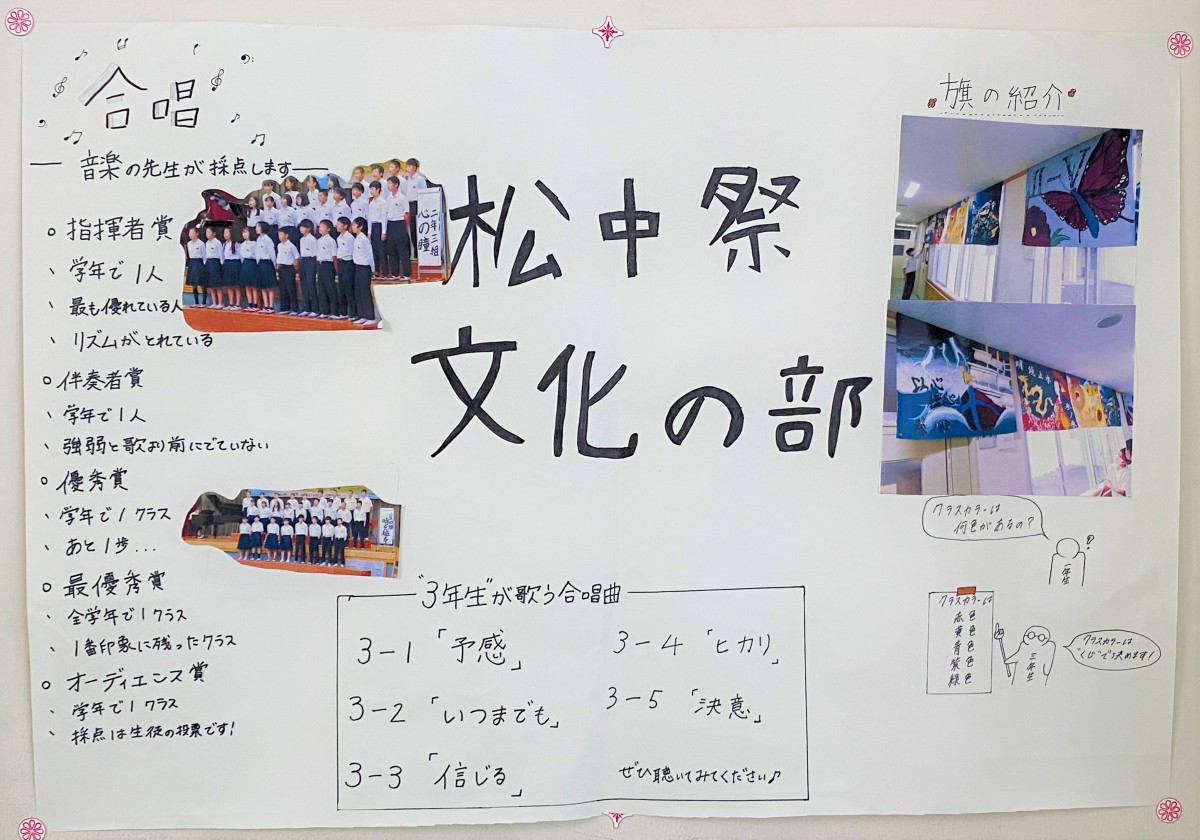 合唱
音楽の先生が採点します
指揮者賞
、学年で1人
、最も優れている人
、リズムがとれている
伴奏者賞
、学年で1人
、強弱と歌より前にでていない
優秀賞
、学年で1クラス
、あと1歩...
最優秀賞
、全学年で1クラス
、1番印象に残ったクラス
オーディエンス賞
、学年で1クラス
、採点は生徒の投票です!
二年三組
心の瞳
松中祭
文化の部
"3年生"が歌う合唱曲
3-1「予感」
3-2「いつまでも」
3-3「信じる」
3-4「ヒカリ」
3-5「決意」
ぜひ聴いてみてください♪
旗の紹介
クラスカラーは
何色があるの?
一年生
クラスカラーは
赤色
黄色
青色
紫色
緑色
三年生
クラスカラーは、
"くじ"で決めます!